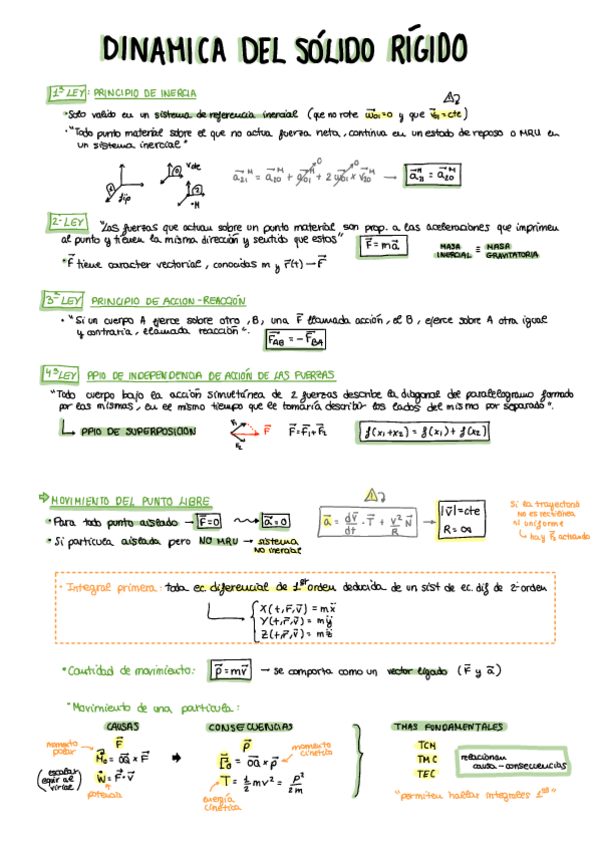 DINAMICA DEL SÓLIDO RÍGIDO
1ª LEY : PRINCIPIO DE INERCIA
• Solo valido en un sistema de referencia inercial (que no rote ω₀₁=0 y que = cte)
• "Todo punto material sobre el que no actua fuerza neta, continua en un estado de reposo o MRU en
un sistema inercial"
fijo
v cte
• M
2ª LEY "Las fuerzas que actuan sobre un punto material son prop. a las aceleraciones que imprimen
al punto y tienen la misma dirección y sentido que estas"
F⃗ = ma⃗
MASA INERCIAL ≡ MASA GRAVITATORIA
• F⃗ tiene caracter vectorial, conocidas m y r⃗(t) → F⃗
3ª LEY PRINCIPIO DE ACCION-REACCIÓN
• "Si un cuerpo A ejerce sobre otro, B, una F⃗ llamada acción, el B, ejerce sobre A otra igual
y contraria, llamada reacción".
F⃗AB = - F⃗BA
4ª LEY PPIO DE INDEPENDENCIA DE ACCIÓN DE LAS FUERZAS
"Todo cuerpo bajo la acción simultánea de 2 fuerzas describe la diagonal del paralelogramo formado
por las mismas, en el mismo tiempo que le tomaría describir los lados del mismo por separado".
PPIO DE SUPERPOSICION
F₁ F₂ F⃗
F⃗ = F⃗₁ + F⃗₂
f(x₁+x₂) = f(x₁) + f(x₂)
⇒ MOVIMIENTO DEL PUNTO LIBRE
• Para todo punto aislado → F⃗=0 → a⃗=0
a⃗ = dv⃗/dt · T⃗ + v²/R N⃗
|v⃗| = cte
R = ∞
Si la trayectoria
no es rectilínea
ni uniforme
↳ hay F⃗ actuando
• Si partícula aislada pero NO MRU → sistema
NO inercial
• Integral primera: toda ec. diferencial de 1er orden deducida de un sist de ec. dif de 2º orden
X(t,r⃗,v⃗) = mẍ
Y(t,r⃗,v⃗) = mÿ
Z(t,r⃗,v⃗) = mz̈
• Cantidad de movimiento: p⃗ = mv⃗ → se comporta como un vector ligado (F⃗ y a⃗)
• Movimiento de una particula:
CAUSAS CONSECUENCIAS TMAS FUNDAMENTALES
momento polar
F⃗
M⃗₀ = OQ × F⃗
(escalar equir al virial)
Ẇ = F⃗·v⃗
potencia
p⃗
OQ × p⃗
momento cinético
T = ½ mv² = p²/2m
energía cinética
TCM
TMC
TEC
relacionan
causa-consecuencias
"permiten hallar integrales 1as"